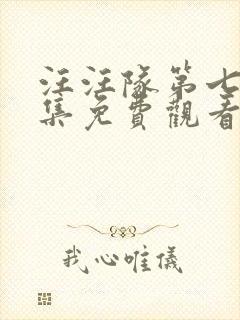 汪汪隊第七
集免費觀看
我心唯儀